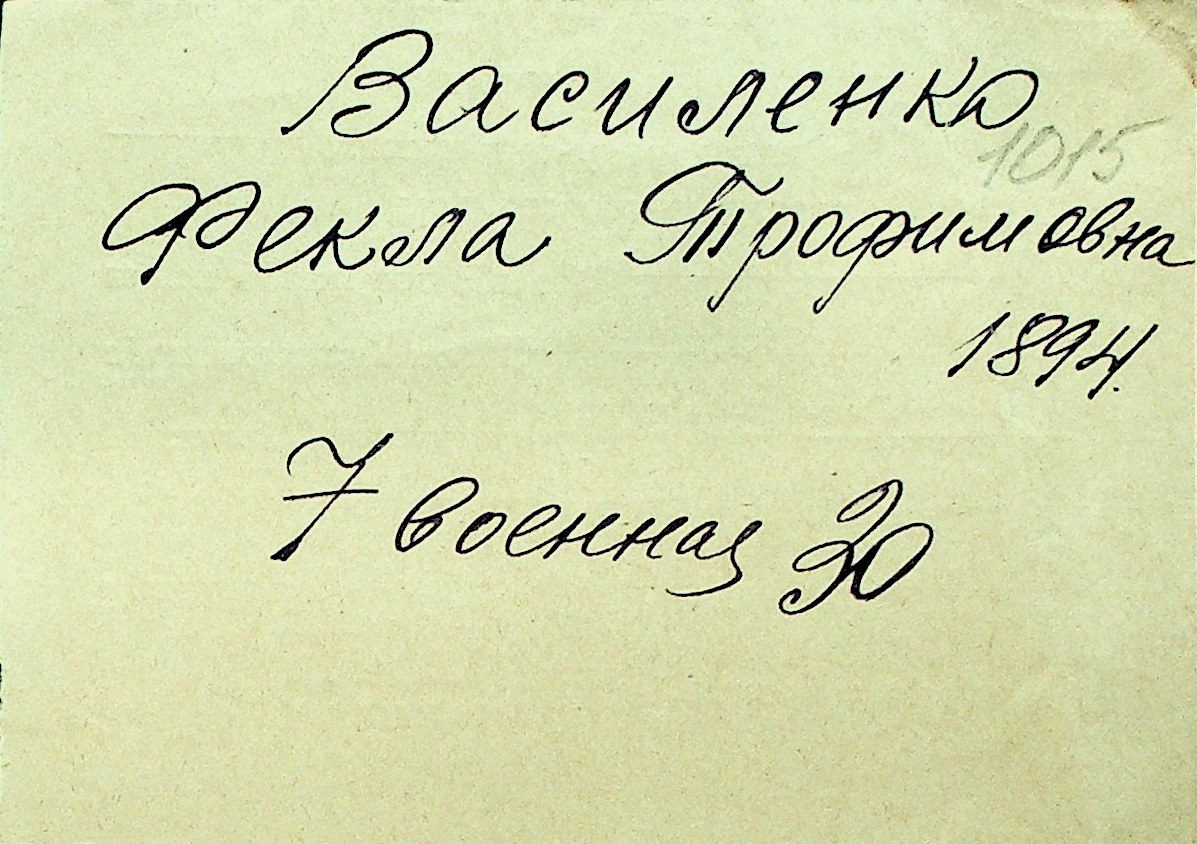 Василенко
1015
Фекла Трофимовна
1894.
7 военная 30